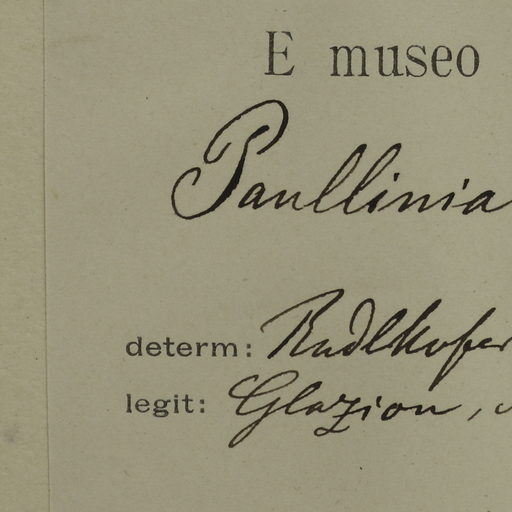 E museo
Paullinia
determ: Radlkofer
legit: Glaziou,